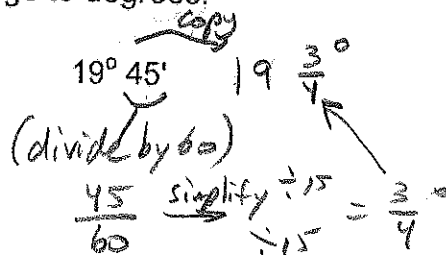 to degrees.
copy
19° 45' 19 3/4°
(divide by 60)
45/60 simplify ÷15 ÷15 = 3/4°